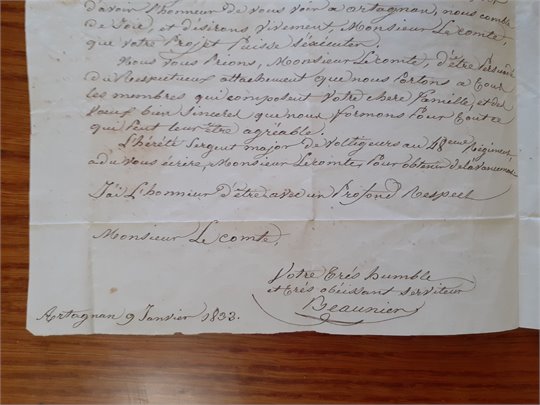 d'avoir l'honneur de vous voir a artagnan, nous comble
de Joie, et désirons vivement, Monsieur Le comte,
que votre Projet Puisse s'exécuter.
Nous vous Prions, Monsieur Le comte, d'être Persuadé
du Respectueux attachement que nous Portons a tous
les membres qui composent votre chere famille, et des
voeux bien Sinceres que nous formons Pour tout ce
qui Peut leur être agréable.
L'hérété Sergent major de voltigeurs au 48eme Régiment,
a du vous écrire, Monsieur Le comte, Pour obtenir de l'avancement.
J'ai L'honneur d'être avec un Profond Respect
Monsieur Le comte,
Votre trés humble
et trés obéissant serviteur
Beaunier
Artagnan 9 Janvier 1833.